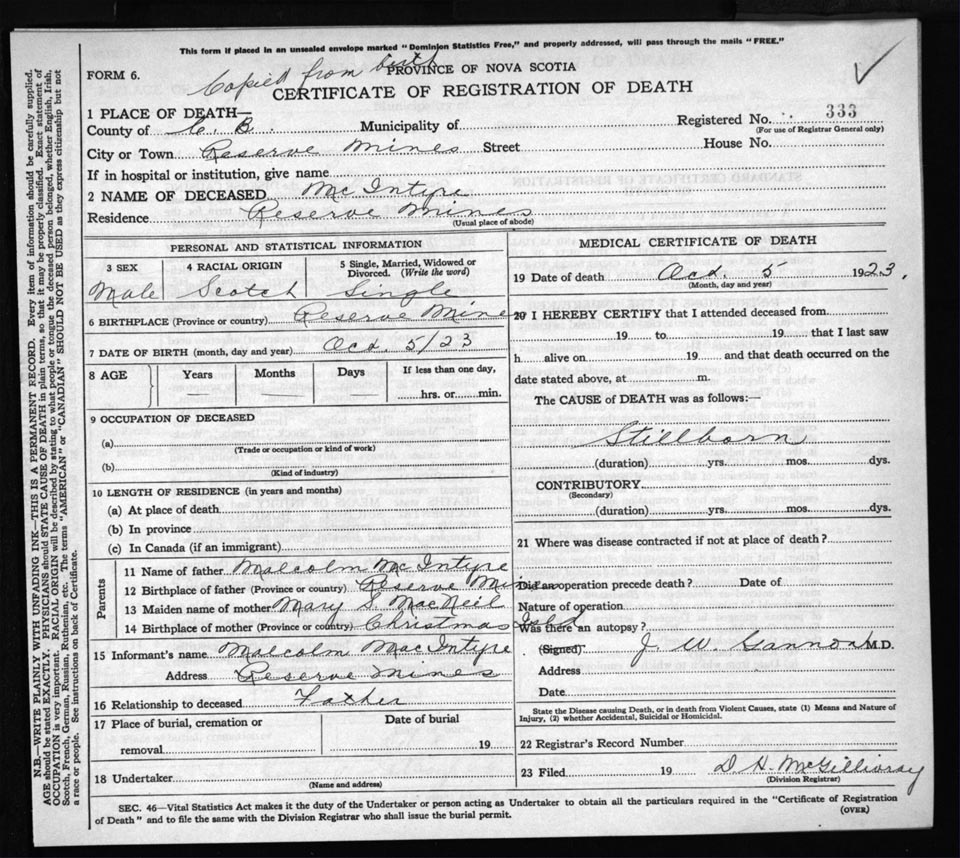 This form if placed in an unsealed envelope marked "Dominion Statistics Free," and properly addressed, will pass through the mails "FREE."
Copied from birth
FORM 6. PROVINCE OF NOVA SCOTIA
CERTIFICATE OF REGISTRATION OF DEATH
1 PLACE OF DEATH—
Registered No. 333
(For use of Registrar General only)
County of C. B. Municipality of
City or Town Reserve Mines Street House No.
If in hospital or institution, give name
2 NAME OF DECEASED Mc Intyre
Residence Reserve Mines
(Usual place of abode)
PERSONAL AND STATISTICAL INFORMATION
3 SEX 4 RACIAL ORIGIN 5 Single, Married, Widowed or Divorced. (Write the word)
Male Scotch Single
6 BIRTHPLACE (Province or country) Reserve Mines
7 DATE OF BIRTH (month, day and year) Ocd. 5/23
8 AGE Years Months Days If less than one day,
hrs. or min.
9 OCCUPATION OF DECEASED
(a)
(Trade or occupation or kind of work)
(b)
(Kind of industry)
10 LENGTH OF RESIDENCE (in years and months)
(a) At place of death
(b) In province
(c) In Canada (if an immigrant)
Parents
11 Name of father Malcolm Mc Intyre
12 Birthplace of father (Province or country) Reserve Mines
13 Maiden name of mother Mary S. MacNeil
14 Birthplace of mother (Province or country) Christmas Isld
15 Informant's name Malcolm MacIntyre
Address Reserve Mines
16 Relationship to deceased Father
17 Place of burial, cremation or Date of burial
removal 19
18 Undertaker
(Name and address)
MEDICAL CERTIFICATE OF DEATH
19 Date of death Ocd. 5 1923.
(Month, day and year)
20 I HEREBY CERTIFY that I attended deceased from
19 to 19 that I last saw
h alive on 19 and that death occurred on the
date stated above, at m.
The CAUSE of DEATH was as follows:—
Stillborn
(duration) yrs. mos. dys.
CONTRIBUTORY
(Secondary)
(duration) yrs. mos. dys.
21 Where was disease contracted if not at place of death?
Did an operation precede death? Date of
Nature of operation
Was there an autopsy?
(Signed) J. W. M.D.
Address
Date
State the Disease causing Death, or in death from Violent Causes, state (1) Means and Nature of
Injury, (2) whether Accidental, Suicidal or Homicidal.
22 Registrar's Record Number
23 Filed 19 D H. McGillivray
(Division Registrar)
SEC. 46—Vital Statistics Act makes it the duty of the Undertaker or person acting as Undertaker to obtain all the particulars required in the "Certificate of Registration
of Death" and to file the same with the Division Registrar who shall issue the burial permit. (OVER)
N.B.—WRITE PLAINLY WITH UNFADING INK—THIS IS A PERMANENT RECORD. Every item of information should be carefully supplied.
AGE should be stated EXACTLY. PHYSICIANS should STATE CAUSE OF DEATH in plain terms, so that it may be properly classified. Exact statement of
OCCUPATION is very important. RACIAL ORIGIN will be described by stating to what people or tongue the deceased person belonged, whether English, Irish,
Scotch, French, German, Russian, Ruthenian, etc. The terms "AMERICAN" or "CANADIAN" SHOULD NOT BE USED as they express citizenship but not
a race or people. See instructions on back of Certificate.